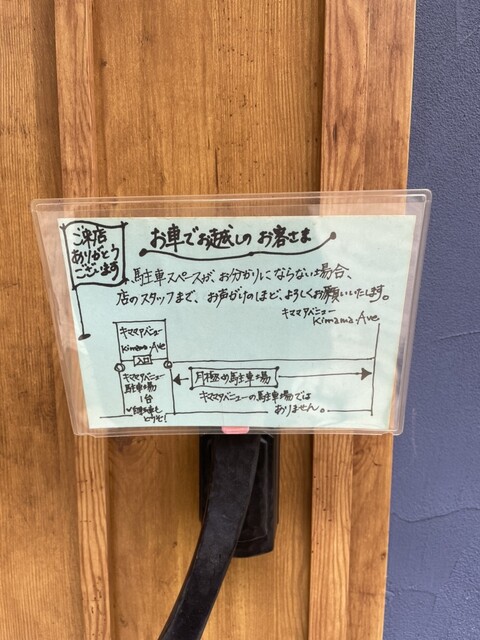 ご来店
ありがとう
ございます
お車でお越しの お客さま
駐車スペースが、お分かりにならない場合、
店のスタッフまで、お声がけのほど、よろしくお願いいたします。
キママアバニュー
Kimama Ave
キママアバニュー
Kimama Ave
入口
キママアバニュー
駐車場
1台
月極め駐車場
キママアバニューの駐車場では
ありません。